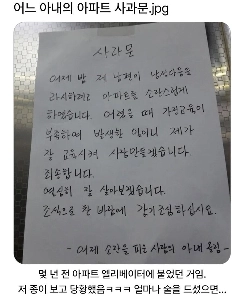 어느 아내의 아파트 사과문.jpg
사과문
어제 밤 제 남편이 난상다음을
라시하려고 아파트를 소란스럽게
하였습니다. 어렸을 때 가정교육이
부족하여 발생한 일이니 제가
잘 교육시켜 사람만들겠습니다
죄송합니다.
열심히 잘 살아보겠습니다.
조식으로 찬 바람에 감기조심하십시오.
- 어제 소란을 피운 사람의 아내 올림 -
몇 년 전 아파트 엘리베이터에 붙었던 거임.
저 종이 보고 당황했음ㅋㅋㅋ 얼마나 술을 드셨으면...